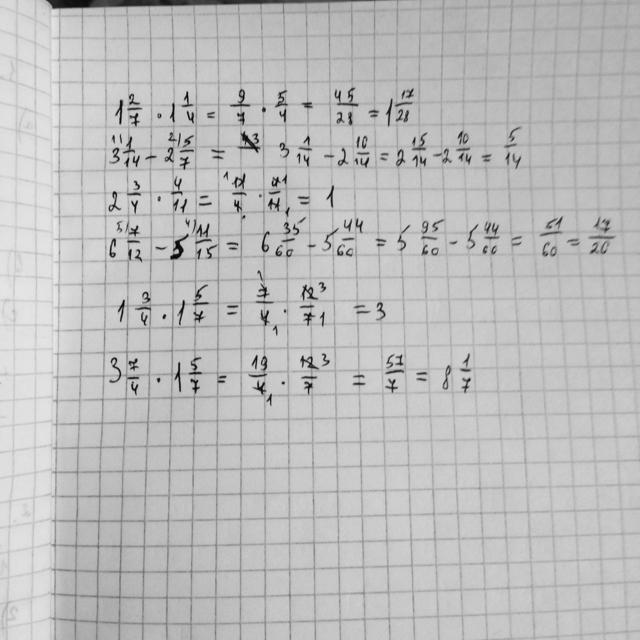 1 2/7 · 1 1/4 = 9/7 · 5/4 = 45/28 = 1 17/28
3 1/14 - 2 5/7 = 3 1/14 - 2 10/14 = 2 15/14 - 2 10/14 = 5/14
2 3/4 · 4/11 = 11/4 · 4/11 = 1
6 7/12 - 5 11/15 = 6 35/60 - 5 44/60 = 5 95/60 - 5 44/60 = 51/60 = 17/20
1 3/4 · 1 5/7 = 7/4 · 12/7 = 3
3 7/4 · 1 5/7 = 19/4 · 12/7 = 57/7 = 8 1/7